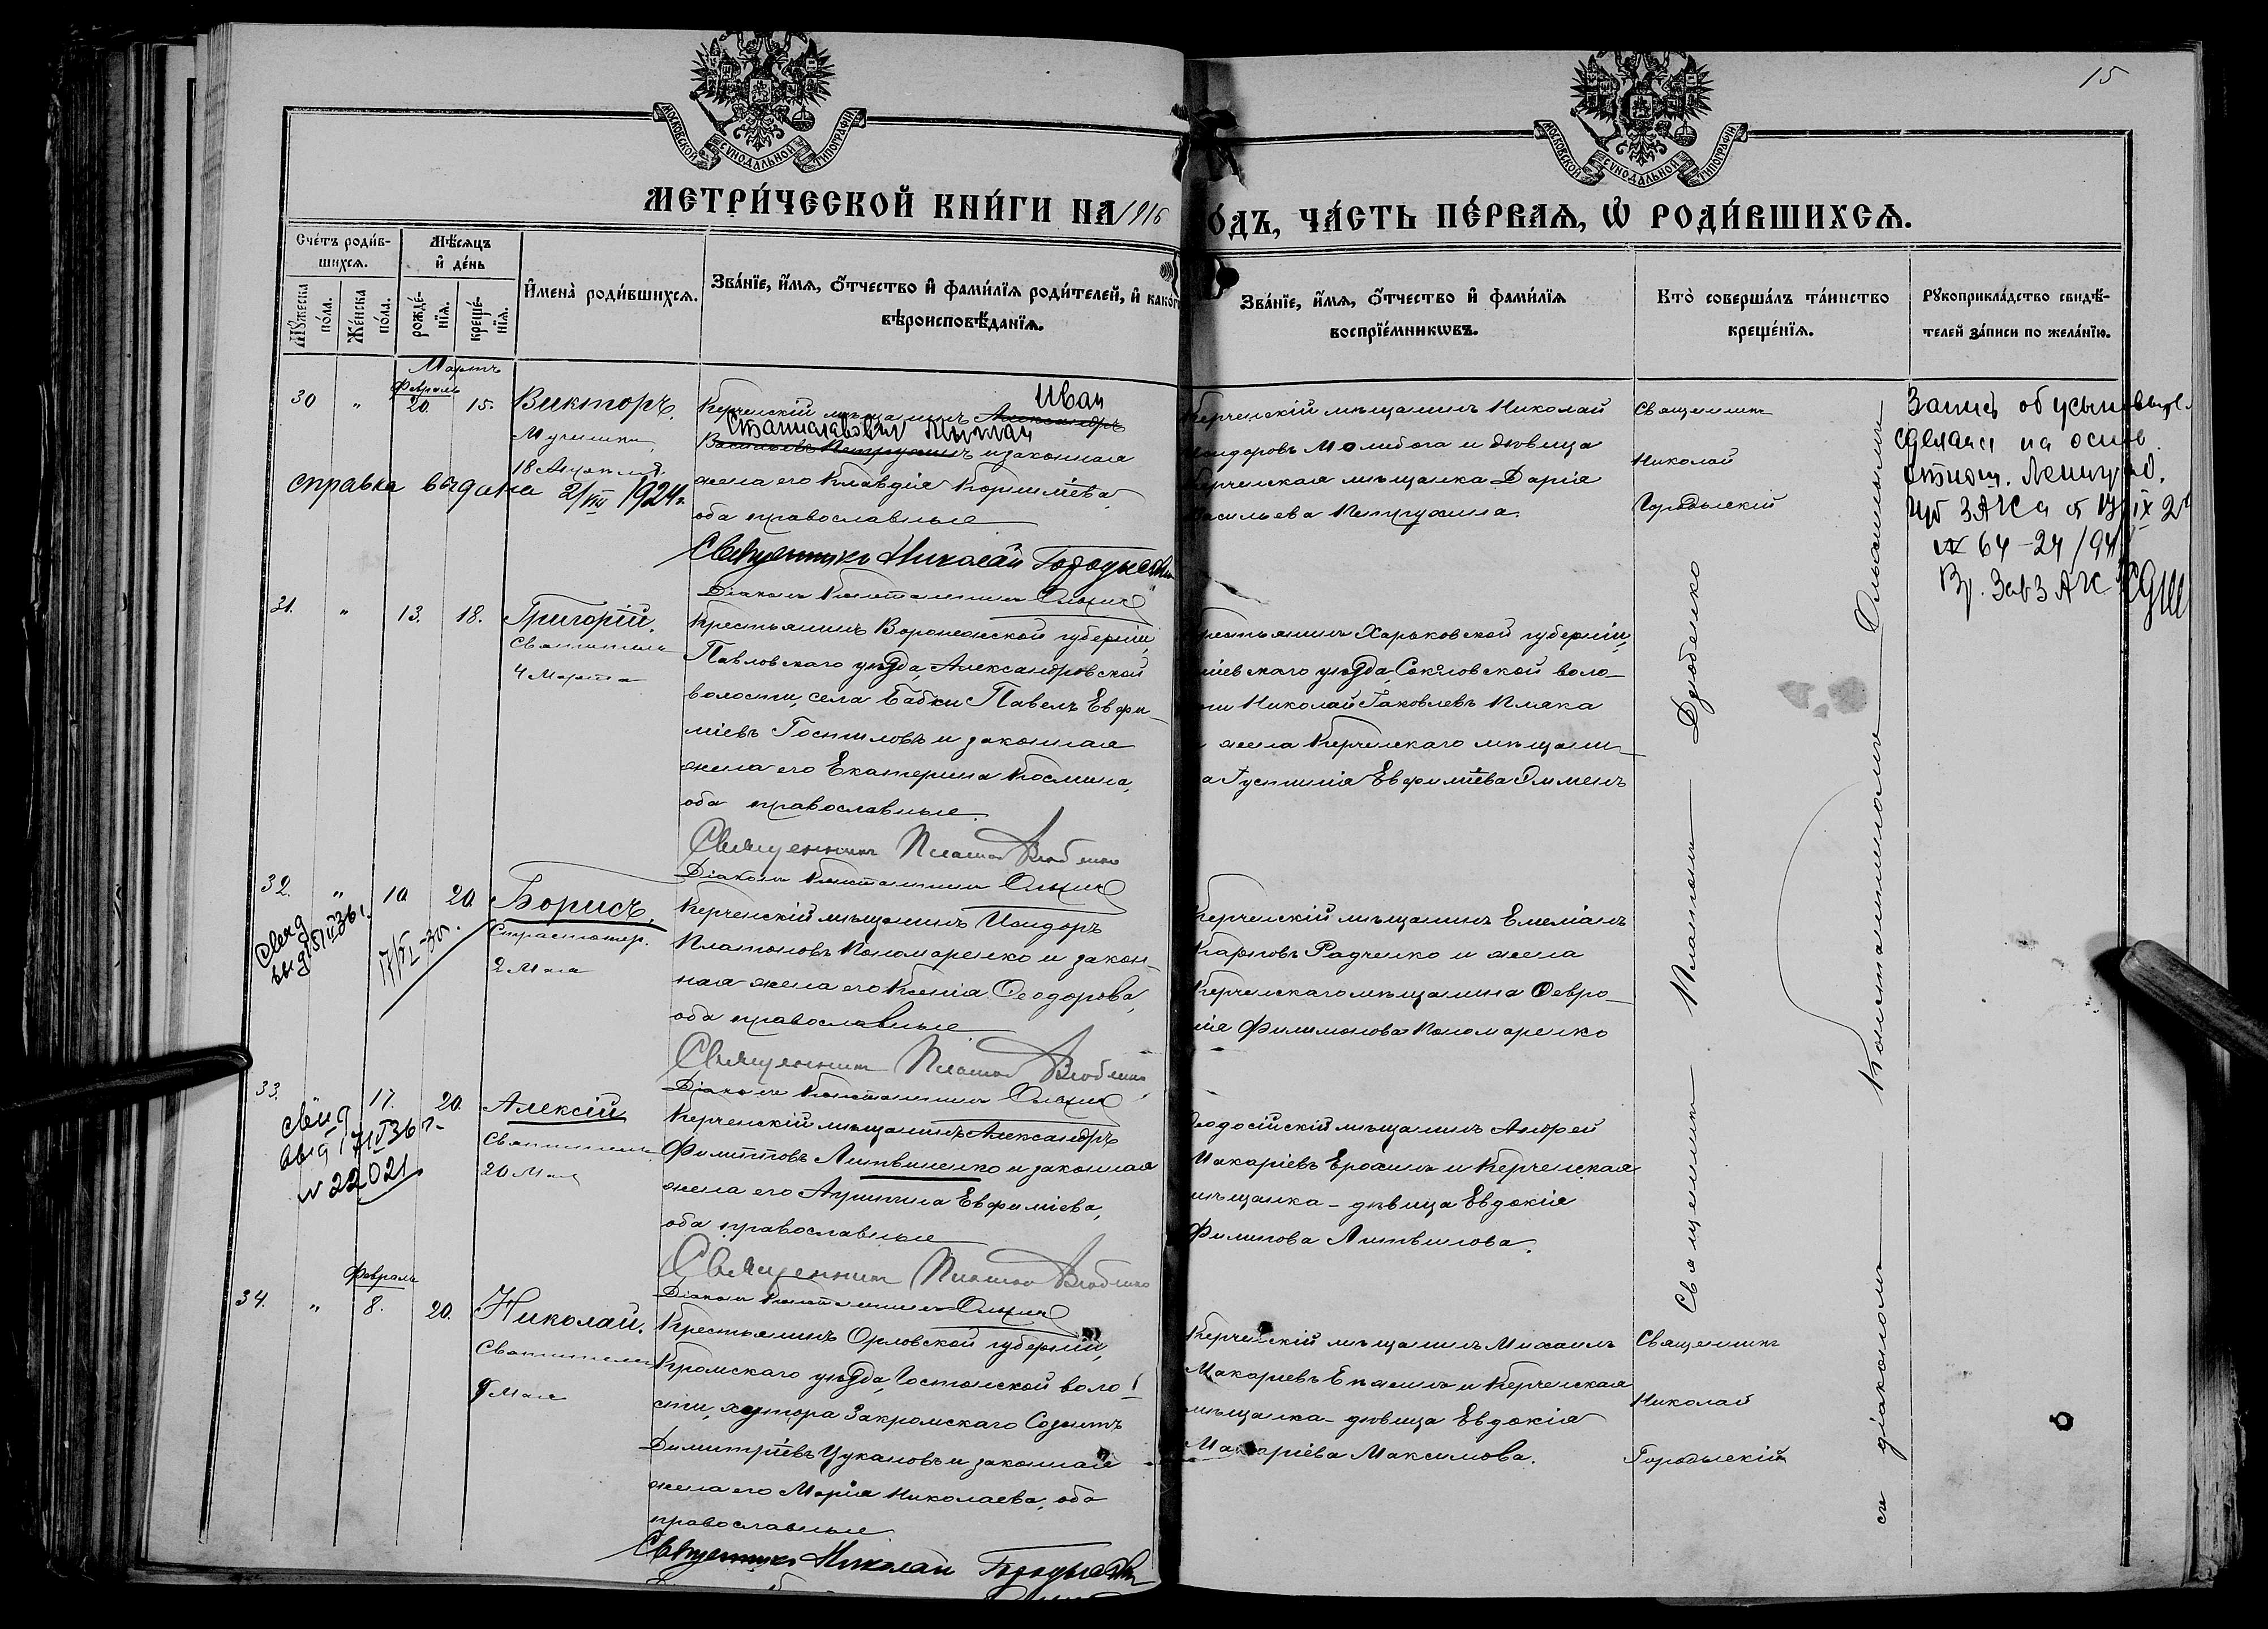 15
МОСКОВСКОЙ СУНОДАЛЬНОЙ ТИПОГРАФІИ
МОСКОВСКОЙ СУНОДАЛЬНОЙ ТИПОГРАФІИ
МЕТРИ́ЧЕСКОЙ КНИ́ГИ НА 1916
ОДЪ, ЧА́СТЬ ПЕ́РВАЯ, Ѡ РОДИ́ВШИХСЯ.
Сче́тъ роди́в-
шихся.
Мѣ́сяцъ
и҆ де́нь
Му́жеска
по́ла.
Же́нска
по́ла.
рожде́-
нїя.
креще́-
нїя.
И҆мена̀ роди́вшихся.
Зва́нїе, и҆́мя, ѻ҆́тчество и҆ фами́лїя роди́телей, и҆ како́г
вѣроисповѣ́данїя.
Зва́нїе, и҆́мя, ѻ҆́тчество и҆ фами́лїя
воспрїе́мникѡвъ.
Кто̀ соверша́лъ та́инство
креще́нїя.
Рꙋкоприкла́дство свидѣ́-
телей за́писи по жела́нїю.
Мартъ
Февраль
30 " 20. 15. Викторъ.
Мученика
18 Апреля
справка выдана 2/VIII 1924 г.
Иван
Керченскій мѣщанинъ Александръ
Станиславович
Васильевъ и законная
жена его Клавдія Корниліева
оба православные
Священникъ Николай Городыскій
Діаконъ Константинъ
Керченскій мѣщанинъ Николай
Молибога и дѣвица
Керченская мѣщанка Дарія
Васильева
Священникъ
Николай
Городыскій
Запись об усыновл.
сделана на основ.
отнош. Ленингр.
ЗАГСа
№ 64-24/94
Вр. Зав ЗАГС
31. " 13. 18. Григорій.
Святителя
4 Марта
Крестьянинъ Воронежской губерніи,
Павловскаго уѣзда, Александровской
волости, села Бабки Павелъ Евфи-
міевъ и законная
жена его Екатерина Косьмина,
оба православные.
Священникъ Платонъ Дзюбенко
Діаконъ Константинъ
рестьянинъ Харьковской губерніи,
уѣзда воло-
Николай Іаковлевъ
жена Керченскаго мѣщани-
а Іустинія Евфиміева
32. " 10 20. Борисъ.
Страстотер.
2 Мая
Керченскій мѣщанинъ Исидоръ
Платоновъ Пономаренко и закон-
ная жена его Ксенія Ѳеодорова,
оба православные
Священникъ Платонъ Дзюбенко
Діаконъ Константинъ
Керченскій мѣщанинъ Емеліанъ
Карповъ Радченко и жена
Керченскаго мѣщанина Февро-
нія Филимонова Пономаренко
33. 17. 20. Алексій
Святителя
20 Мая
свид
№ 22021
Керченскій мѣщанинъ Александръ
Филипповъ Литвиненко и законная
жена его Агриппина Евфиміева,
оба православные
Священникъ Платонъ Дзюбенко
Діаконъ Константинъ
еодосійскій мѣщанинъ Андрей
Макаріевъ Ерохинъ и Керченская
мѣщанка - дѣвица Евдокія
Филипова Литвинова.
Февраль
34. " 8. 20. Николай.
Святителя
9 Мая
Крестьянинъ Орловской губерніи,
Кромскаго уѣзда, Гостомской воло-
сти, хутора Закромскаго Созонтъ
Димитріевъ Цукановъ и законная
жена его Марія Николаева, оба
православные
Священникъ Николай Городыскій
Керченскій мѣщанинъ Михаилъ
Макаріевъ и Керченская
мѣщанка - дѣвица Евдокія
Макаріева Максимова.
Священникъ
Николай
Городыскій
Священникъ Платонъ Дзюбенко
съ діакономъ Константиномъ